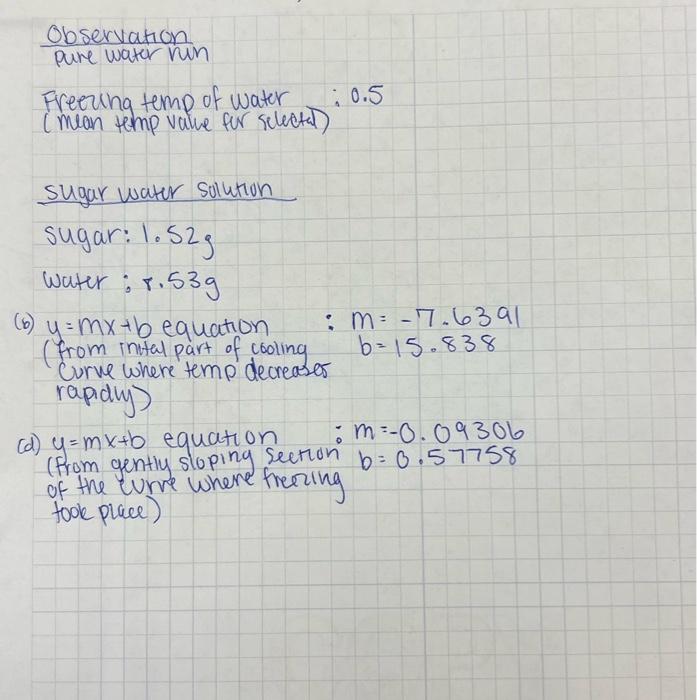 Observation
pure water run
Freezing temp of water : 0.5
(mean temp value for selected)
sugar water solution
sugar: 1.52g
water : 8.53g
(b) y=mx+b equation : m= -7.6391
(from inital part of cooling b= 15.838
curve where temp decreases
rapidly)
(d) y=mx+b equation : m=-0.09306
(from gently sloping section b= 0.57758
of the curve where freezing
took place)